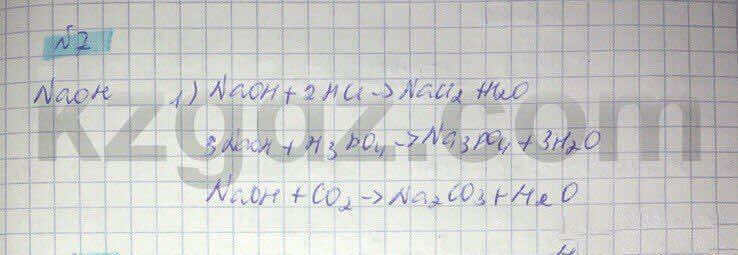 №7
NaOH 1) NaOH + 2HCl → NaCl₂ + H₂O
3NaOH + H₃PO₄ → Na₃PO₄ + 3H₂O
NaOH + CO₂ → Na₂CO₃ + H₂O
kzgdz.com